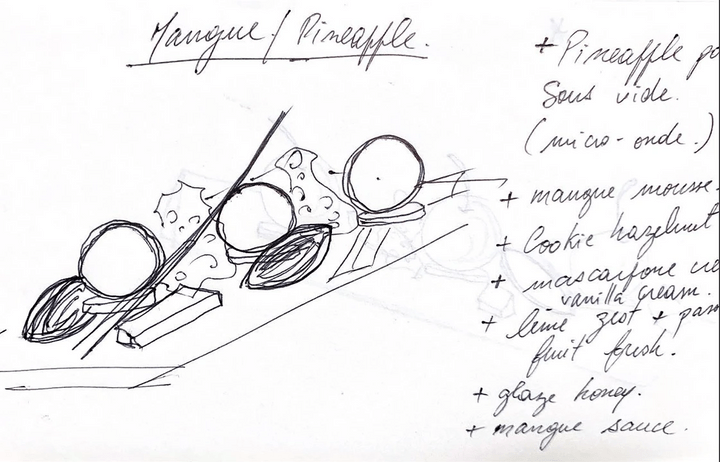 Mangue / Pineapple.
+ Pineapple po
Sous vide.
(micro-onde.)
+ mangue mousse.
+ Cookie hazelnut
+ mascarpone cre
vanilla cream.
+ lime zest + pass
fruit fresh.
+ glaze honey.
+ mangue sauce.